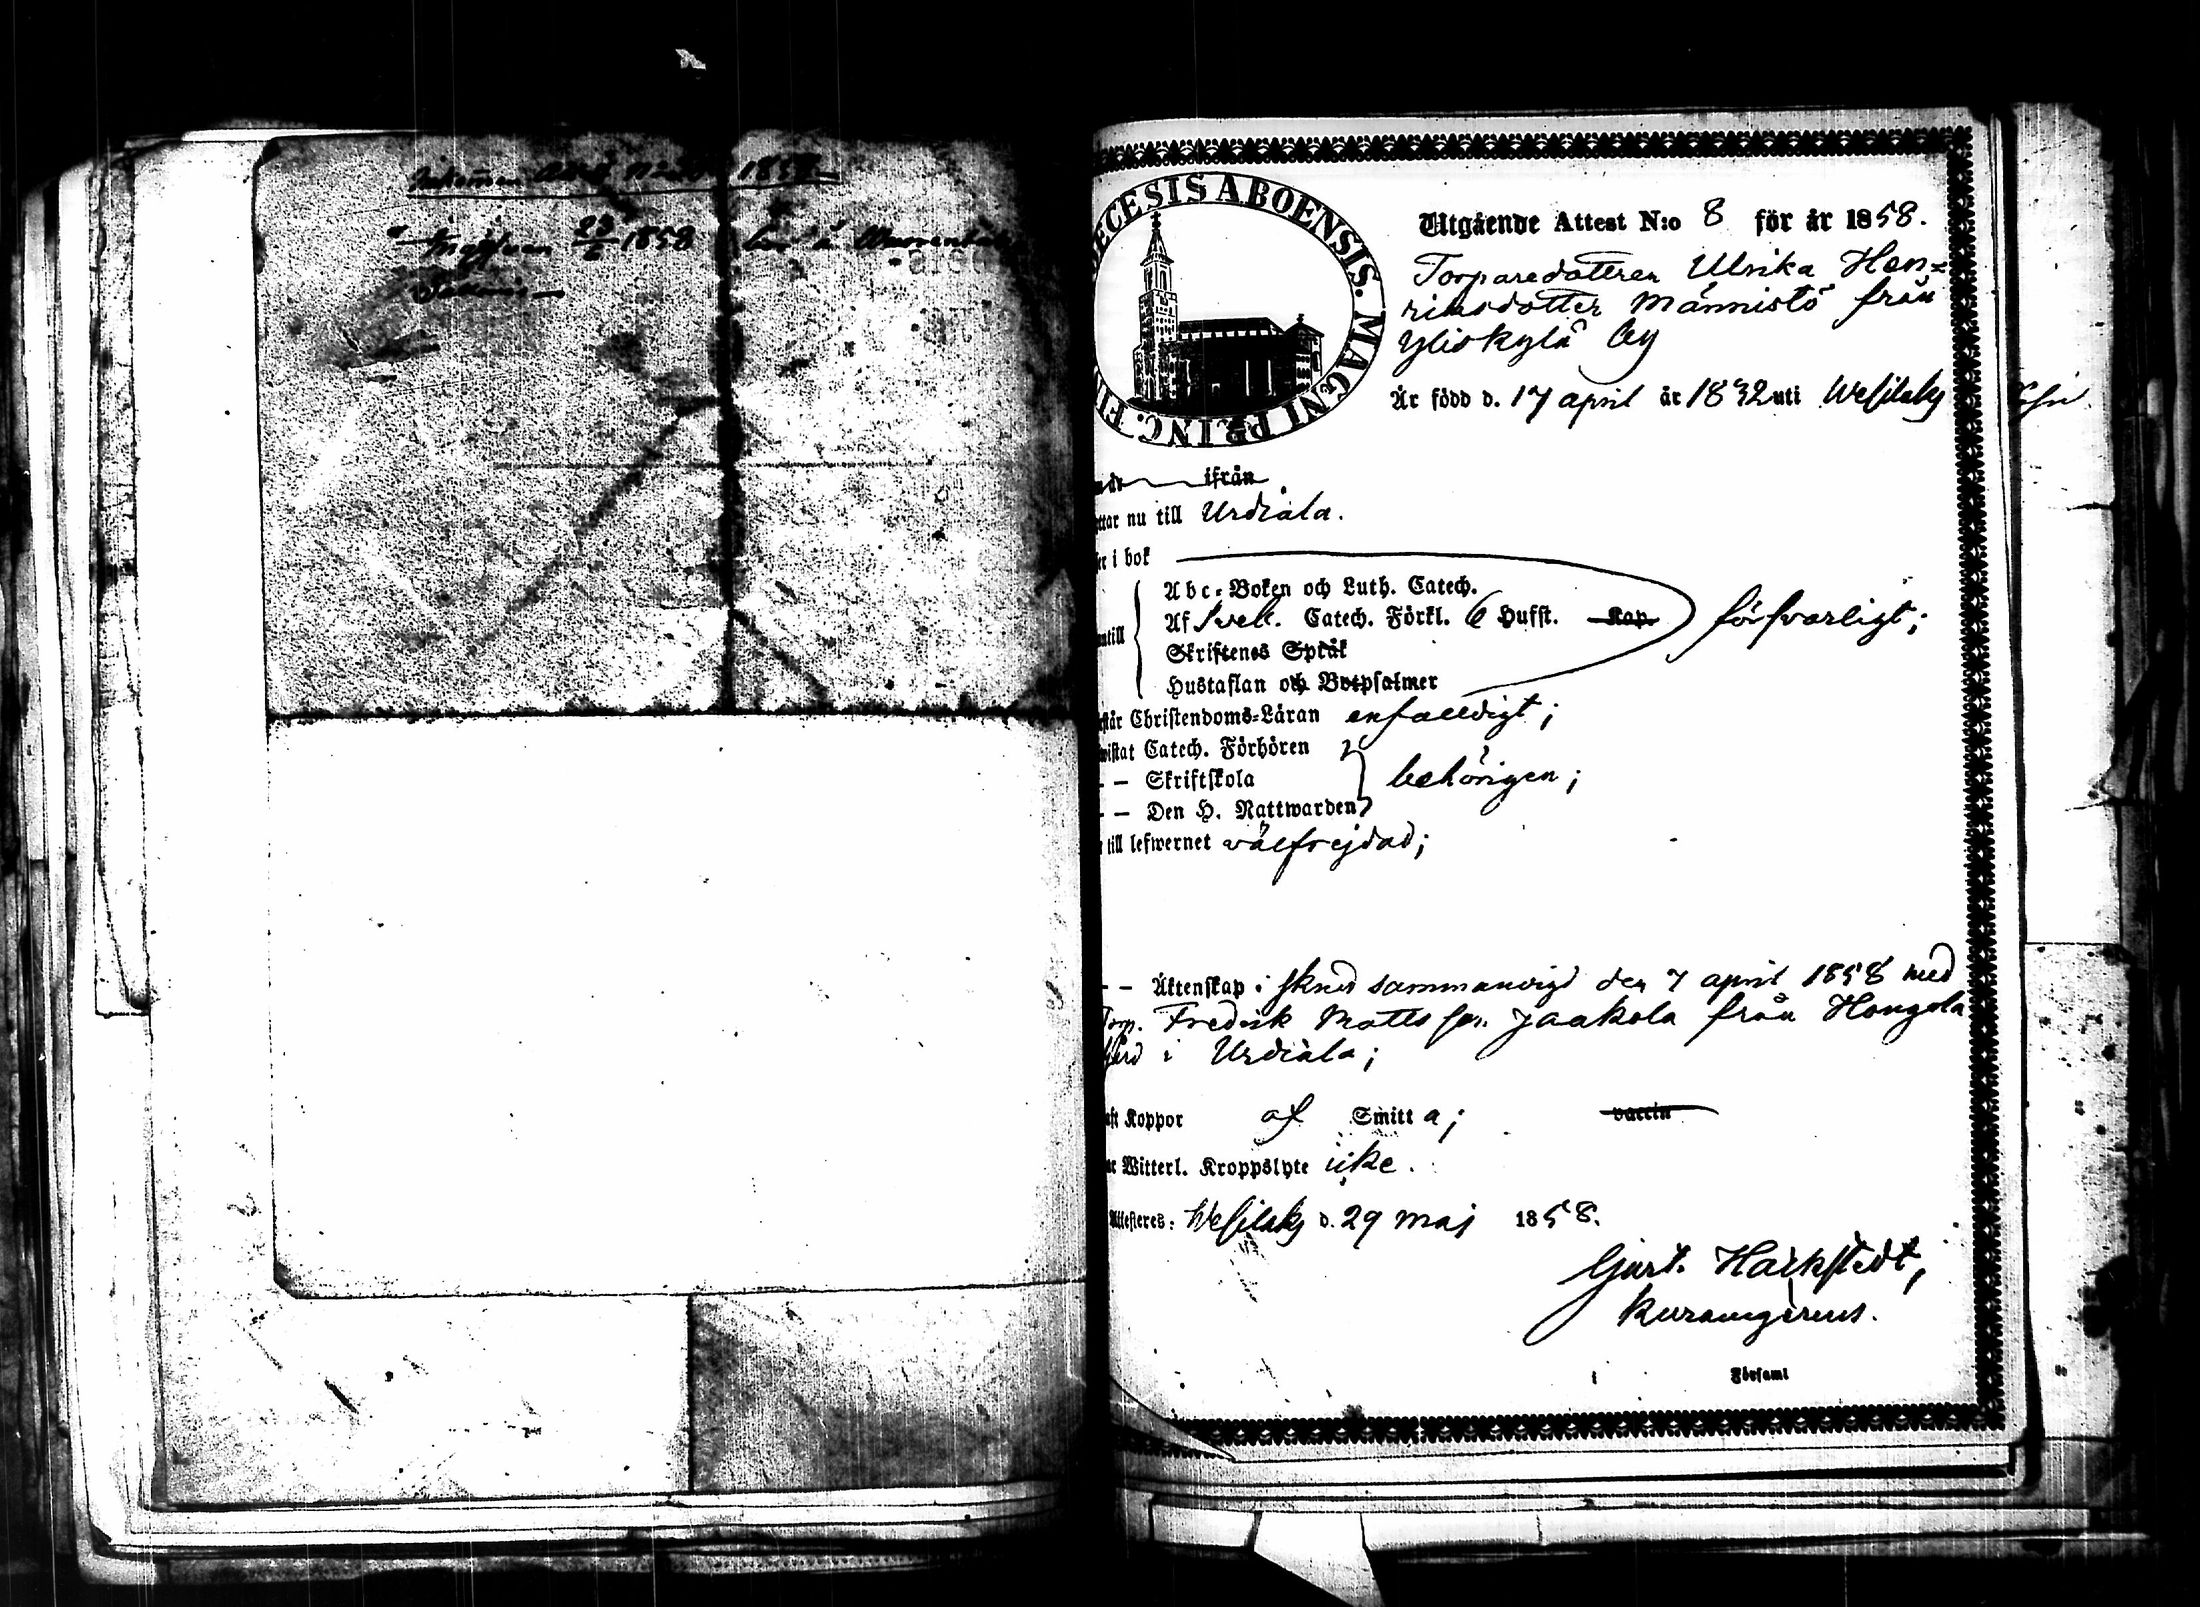 1858
23/6 1858
DIOECESIS ABOENSIS. MAGNI PRINC. FI
Utgående Attest N:o 8 för år 1858.
Torparedottren Ulrika Hen-
riksdotter Männistö från
Yliskylä by
Är född d. 17 april år 1832 uti Wesilaks
ifrån
ttar nu till Urdiala.
er i bok
Abc-Boken och Luth. Catech.
Af Sveb. Catech. Förkl. 6 Hufst. Kap. försvarligt;
ntill
Skriftenes Språk
Hustaflan och Botpsalmer
står Christendoms-Läran enfalldigt;
wistat Catech. Förhören
- - Skriftskola behörigen;
- - Den H. Nattwarden
till lefwernet välfrejdad;
- - Äktenskap i sammanvigd den 7 april 1858 med
Torp. Fredrik Matts son Jaakola från Hongola
gård i Urdiala;
aft Koppor af Smitta; vaccin
ar Witterl. Kroppslyte icke.
Attesteres: Wesilaks d. 29 maj 1858.
Gust. Hackstedt,
Församl